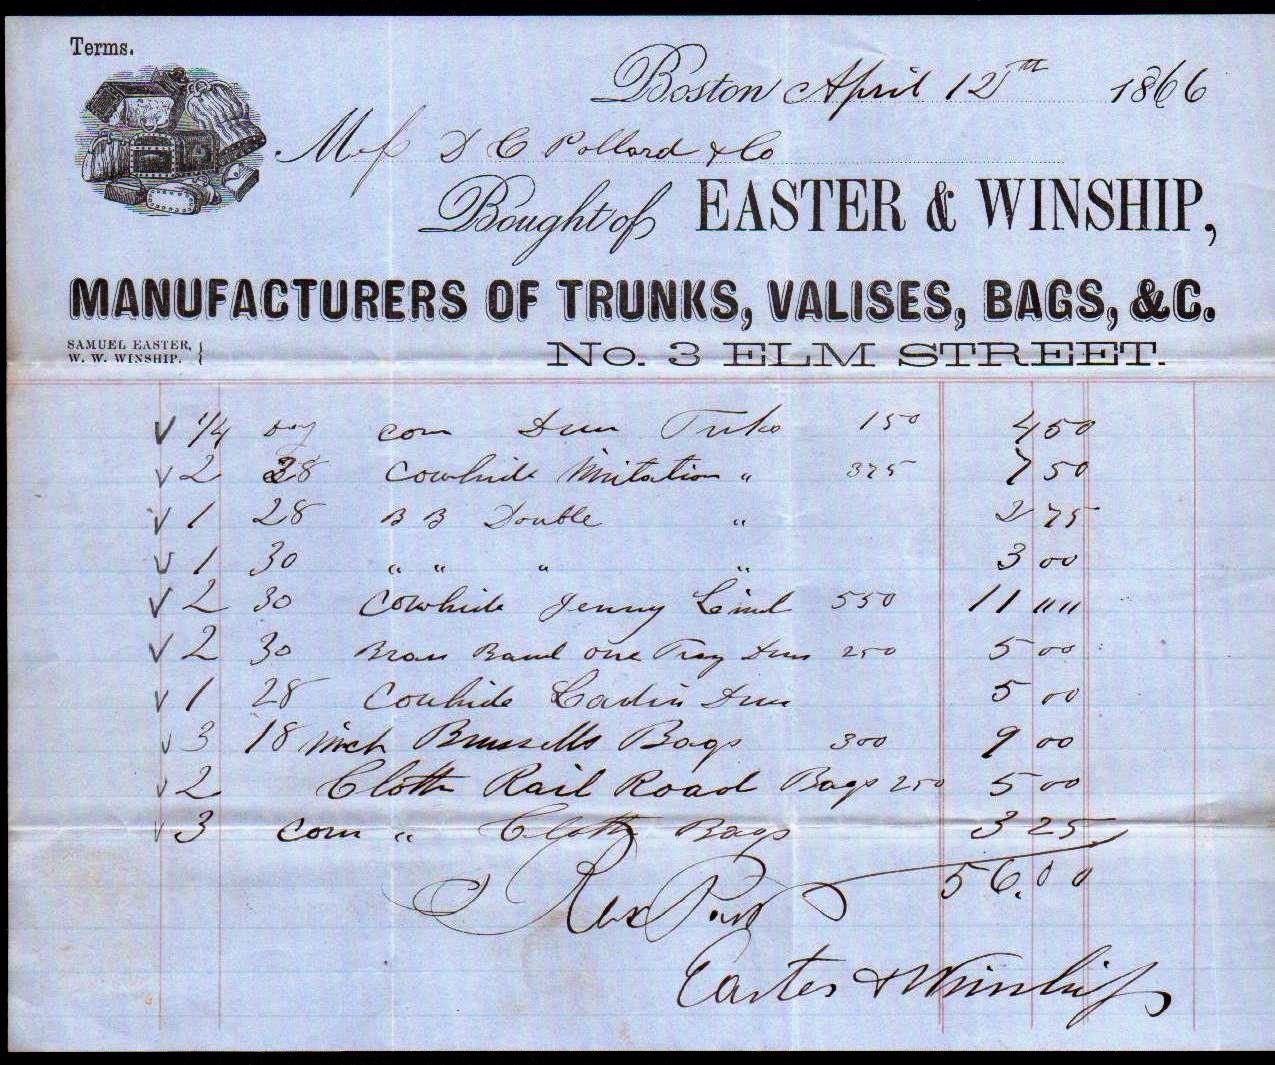 Terms.
Boston April 12th 1866
Mess D C Pollard & Co
Bought of EASTER & WINSHIP,
MANUFACTURERS OF TRUNKS, VALISES, BAGS, &C.
SAMUEL EASTER,
W. W. WINSHIP.
No. 3 ELM STREET.
1/4 Doz com Duu Trnks 150 4 50
2 28 Cowhide Imitation " 375 7 50
1 28 B B Double " 2 75
1 30 " " " " 3 00
2 30 Cowhide Jenny Lind 550 11 """
2 30 Brass Band one Tray 250 5 00
1 28 Cowhide 5 00
3 18 inch Brussells Bags 300 9 00
2 Cloth Rail Road Bags 250 5 00
3 com " Cloth Bags 3 25
56.00
Easter & Winship